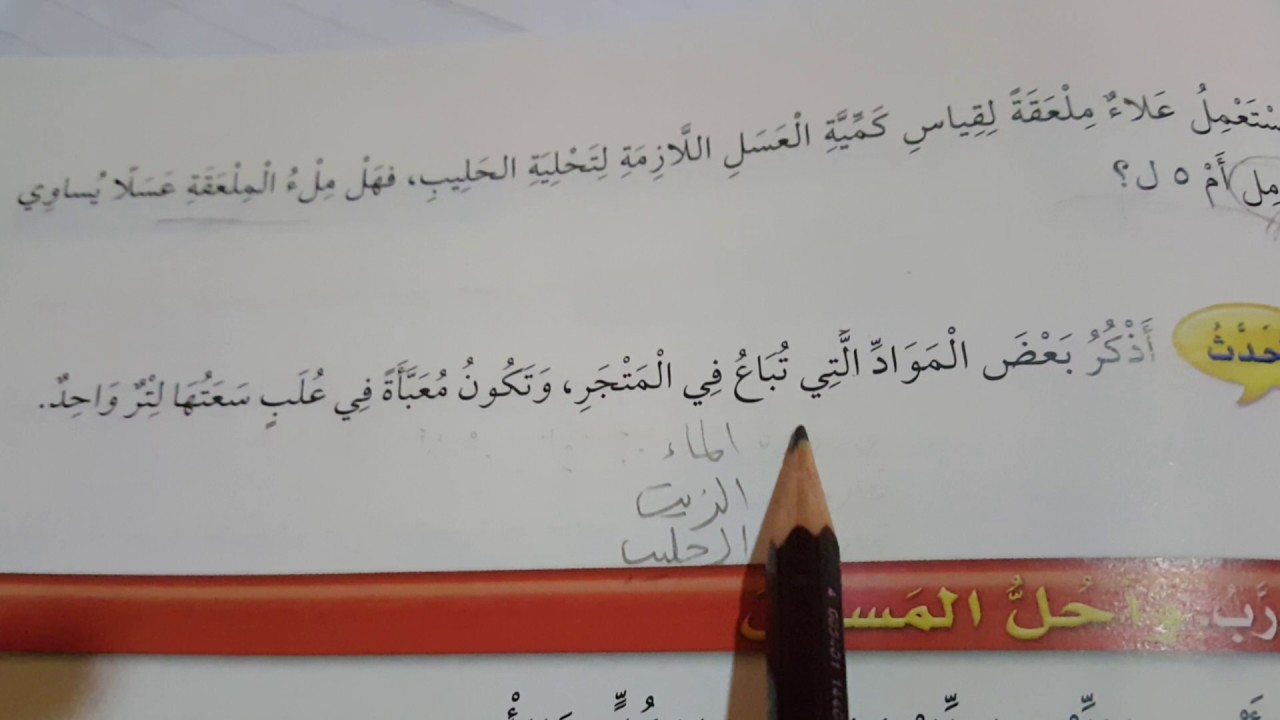 علاءٌ مِلْعَقَةً لِقِياسِ كَمِّيَّةِ الْعَسَلِ اللَّازِمَةِ لِتَحْلِيَةِ الحَلِيبِ، فهَلْ مِلْءُ الْمِلْعَقَةِ عَسَلًا يُساوِي
أَمْ ٥ ل؟
أَذْكُرُ بَعْضَ الْمَوَادِّ الَّتِي تُبَاعُ فِي الْمَتْجَرِ، وَتَكُونُ مُعَبَّأَةً فِي عُلَبٍ سَعَتُهَا لِتْرٌ وَاحِدٌ.
الماء
الزيت
الحليب
وَأَحُلُّ